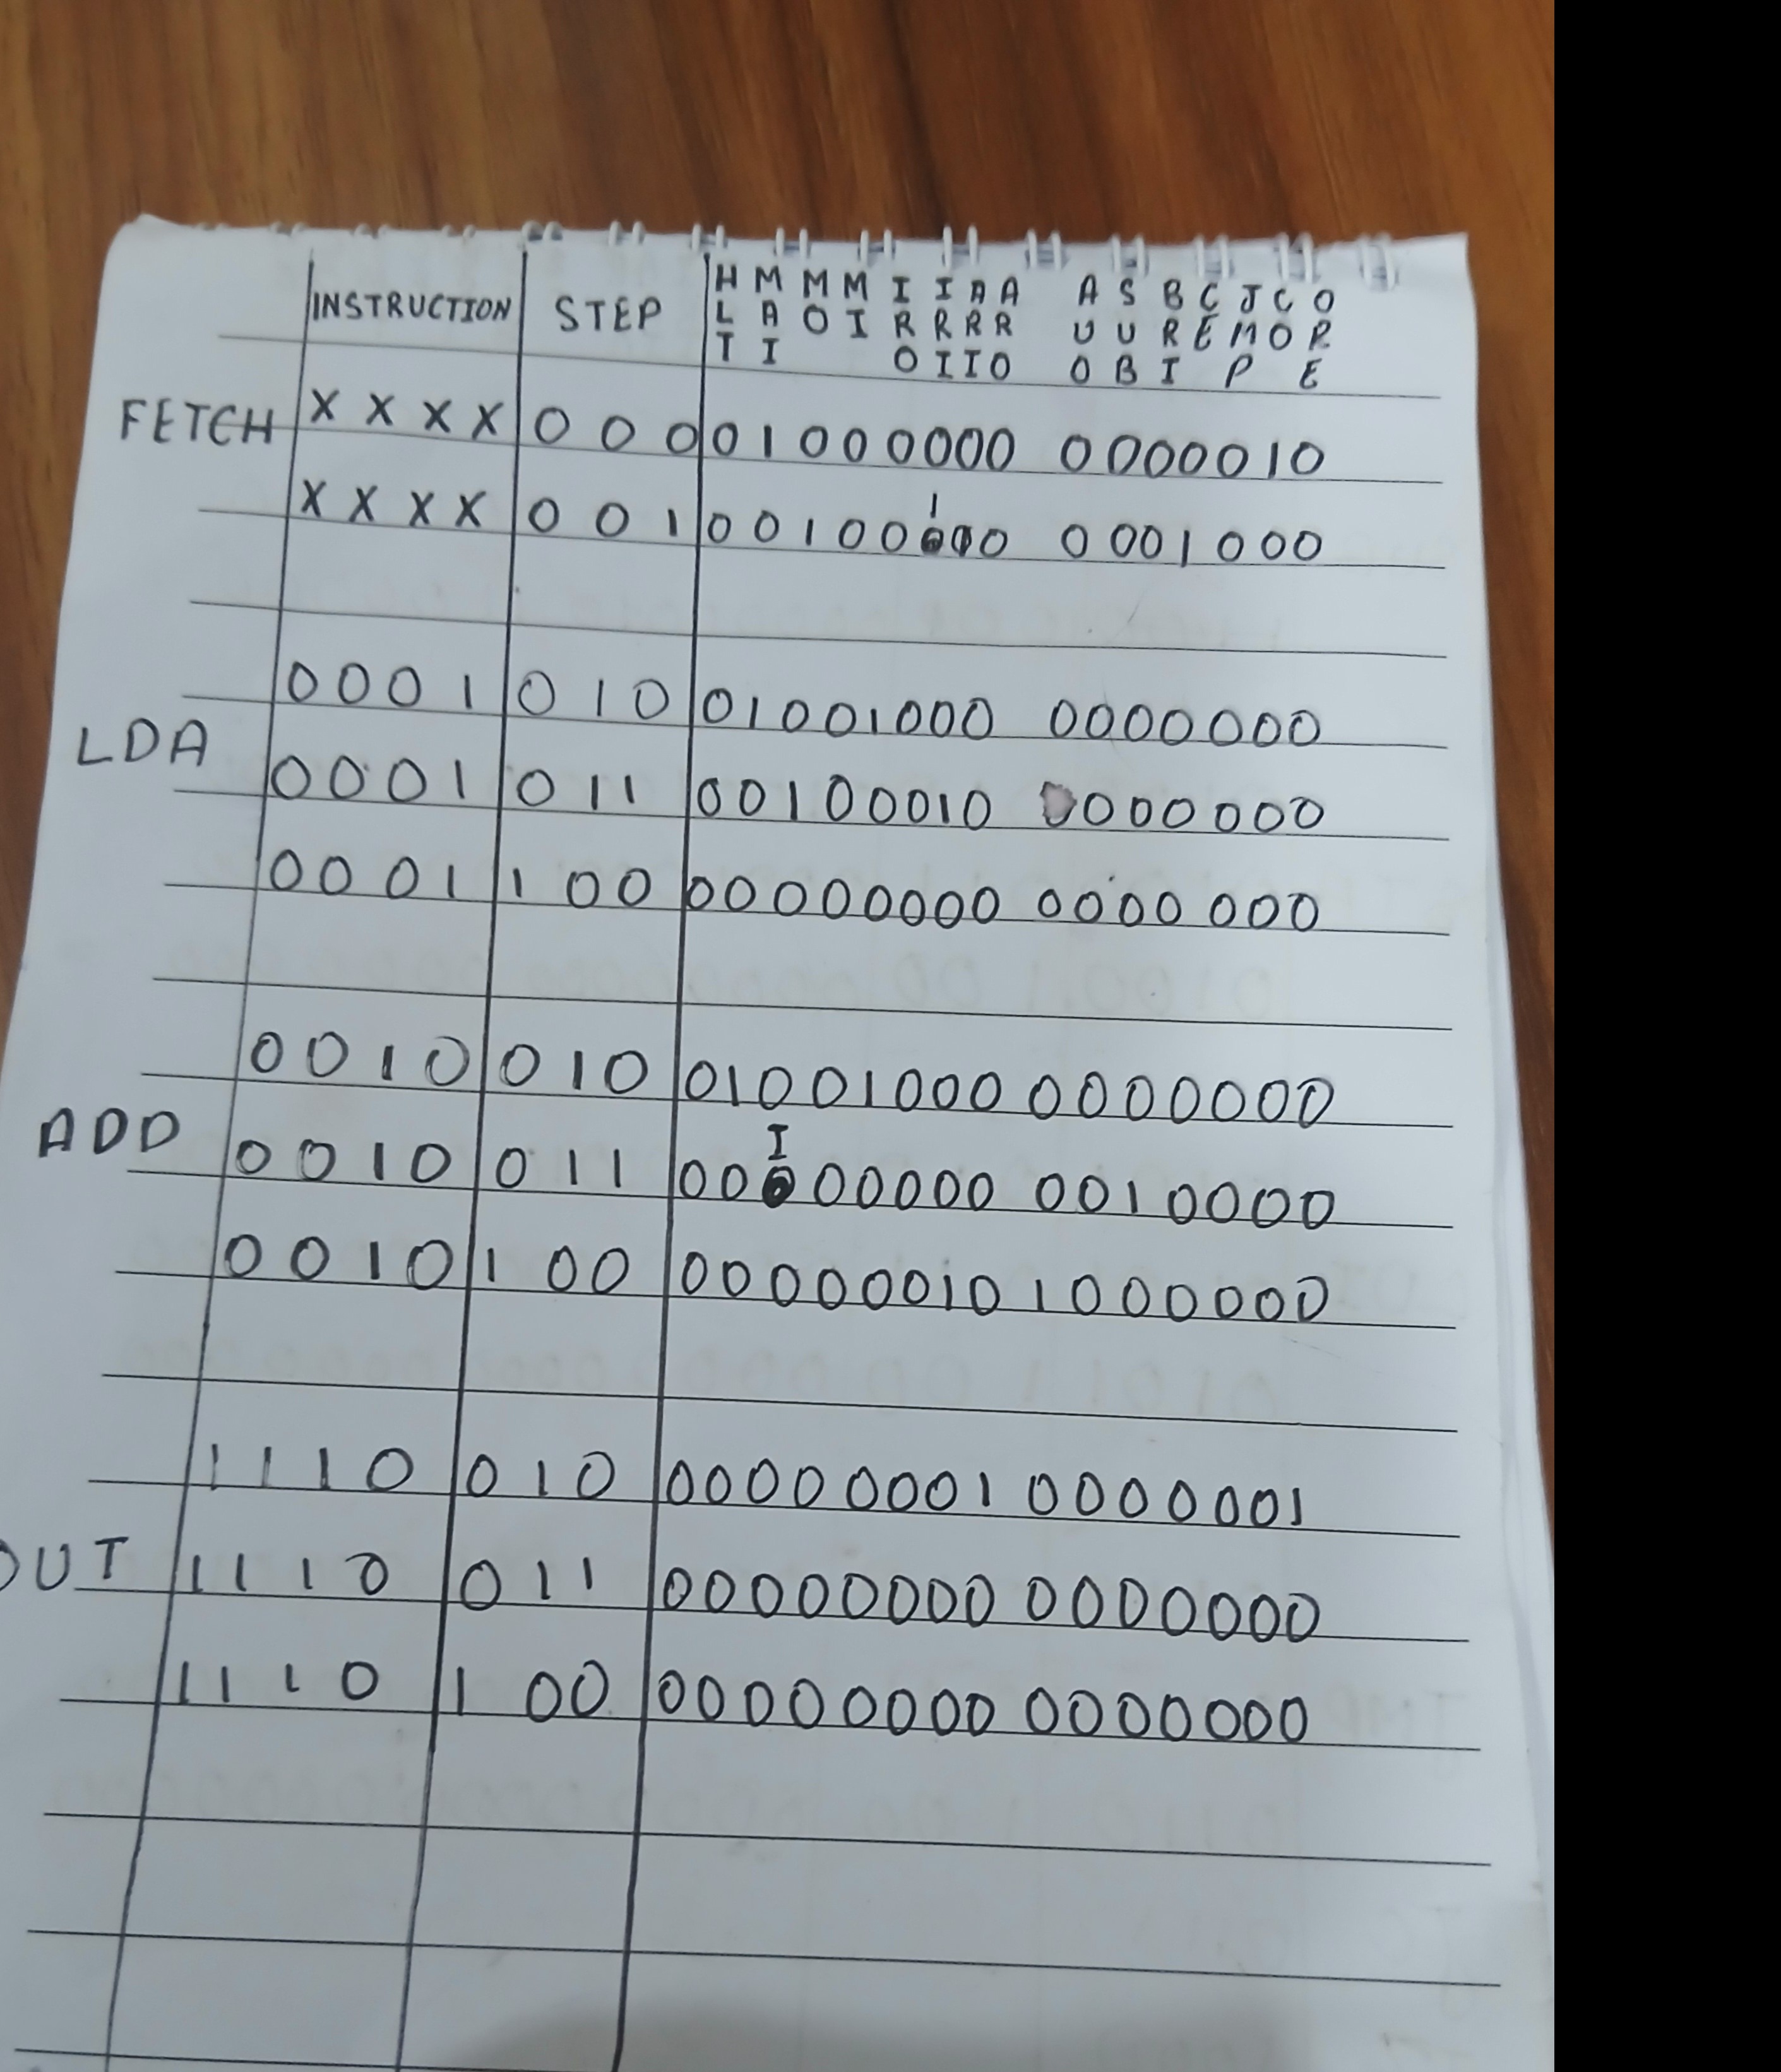 H M M M I I A A A S B C J C O
INSTRUCTION STEP L A O I R R R R U U R E M O R
T I O I I O O B I P E
FETCH X X X X 0 0 0 01000000 0000010
X X X X 0 0 1 00100100 0001000
0001 010 01001000 0000000
LDA
0001 011 00100010 0000000
0001 100 00000000 0000000
0010 010 01001000 0000000
ADD
0010 011 00100000 0010000
0010 100 00000010 1000000
1110 010 00000001 0000001
OUT 1110 011 00000000 0000000
1110 100 00000000 0000000